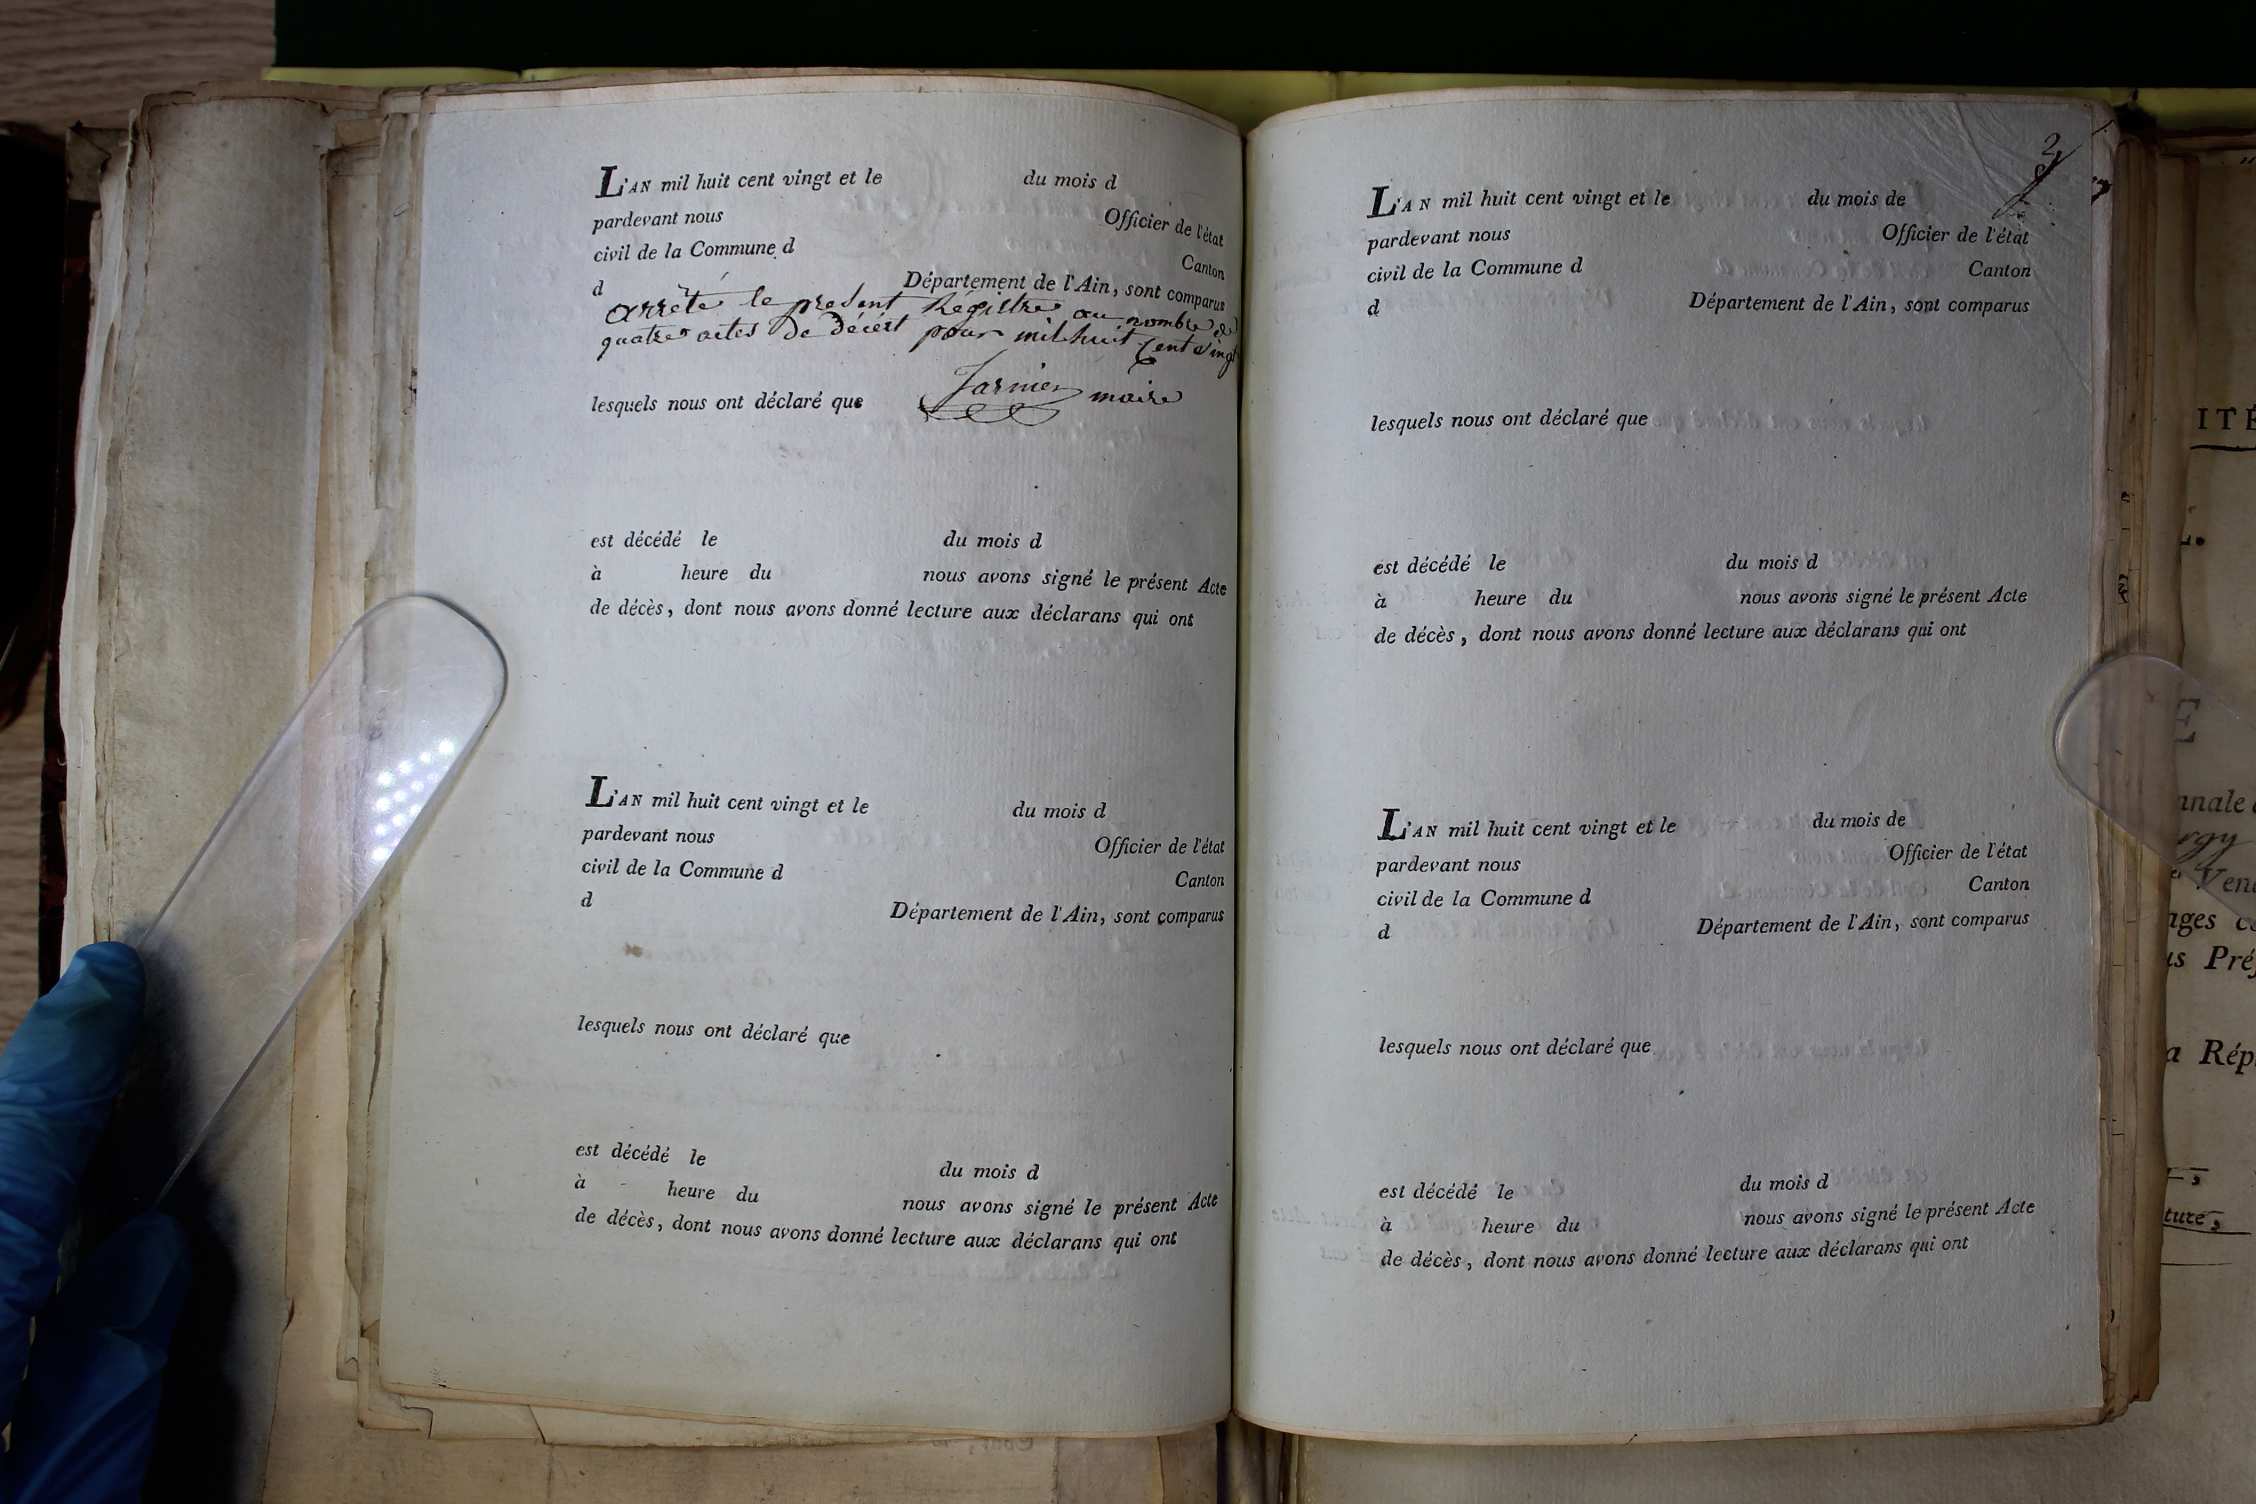 L'AN mil huit cent vingt et le du mois d
pardevant nous Officier de l'état
civil de la Commune d Canton
d Département de l'Ain, sont comparus
arrêté le présent Régistre au nombre de
quatre actes de décért pour mil huit Cent vingt
lesquels nous ont déclaré que
Jarnier maire
est décédé le du mois d
à heure du nous avons signé le présent Acte
de décès, dont nous avons donné lecture aux déclarans qui ont
L'AN mil huit cent vingt et le du mois d
pardevant nous Officier de l'état
civil de la Commune d Canton
d Département de l'Ain, sont comparus
lesquels nous ont déclaré que
est décédé le du mois d
à heure du nous avons signé le présent Acte
de décès, dont nous avons donné lecture aux déclarans qui ont
2
L'AN mil huit cent vingt et le du mois de
pardevant nous Officier de l'état
civil de la Commune d Canton
d Département de l'Ain, sont comparus
lesquels nous ont déclaré que
est décédé le du mois d
à heure du nous avons signé le présent Acte
de décès, dont nous avons donné lecture aux déclarans qui ont
L'AN mil huit cent vingt et le du mois de
pardevant nous Officier de l'état
civil de la Commune d Canton
d Département de l'Ain, sont comparus
lesquels nous ont déclaré que
est décédé le du mois d
à heure du nous avons signé le présent Acte
de décès, dont nous avons donné lecture aux déclarans qui ont